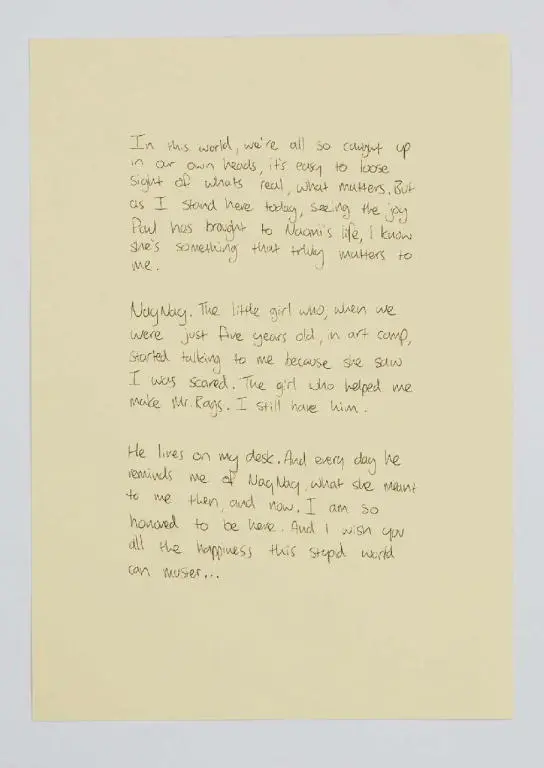 In this world, we're all so caught up
in our own heads, it's easy to loose
sight of whats real, what matters. But
as I stand here today, seeing the joy
Paul has brought to Naomi's life, I know
she's something that truly matters to
me.
NayNay. The little girl who, when we
were just five years old, in art camp,
started talking to me because she saw
I was scared. The girl who helped me
make Mr. Rags. I still have him.
He lives on my desk. And every day he
reminds me of NayNay, what she meant
to me then, and now. I am so
honored to be here. And I wish you
all the happiness this stupid world
can muster...